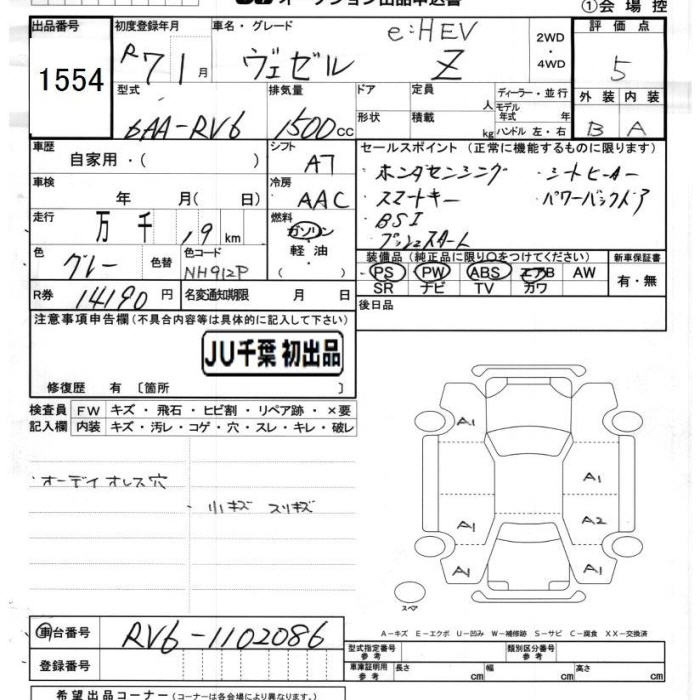 オークション出品申込書
①会場控
出品番号 初度登録年月 車名・グレード 評価点
1554 R7 1月 ヴェゼル e:HEV Z 2WD・4WD 5
型式 排気量 ドア 定員 人 ディーラー・並行 外装 内装
6AA-RV6 1500cc 形状 積載 kg モデル年式 年 ハンドル 左・右 B A
車歴 自家用・( ) シフト A7 セールスポイント (正常に機能するものに限ります)
・ホンダセンシング ・シートヒーター
車検 年 月( 日) 冷房 AAC ・スマートキー ・パワーバックドア
・BSI
走行 万 千 19km 燃料 ガソリン・軽油・( ) ・プッシュスタート
色 グレー 色替 色コード NH912P 装備品 (純正品に限り○をつけてください) 新車保証書
PS PW ABS エアB AW 有・無
SR ナビ TV カワ
R券 14190円 名変通知期限 月 日 後日品
注意事項申告欄(不具合内容等は具体的に記入して下さい)
JU千葉 初出品
修復歴 有 〔箇所 〕
検査員 FW キズ・飛石・ヒビ割・リペア跡・×要
記入欄 内装 キズ・汚レ・コゲ・穴・スレ・キレ・破レ
・オーディオレス穴
・小キズ スリキズ
A1
A1
A1 A2
A1 A1
スペア
A-キズ E-エクボ U-凹み W-補修跡 S-サビ C-腐食 XX-交換済
車台番号 RV6-1102086
型式指定番号 参考 類別区分番号 参考
登録番号 車庫証明用 参考 長さ cm 幅 cm 高さ cm
希望出品コーナー(コーナーは各会場により異なります。)